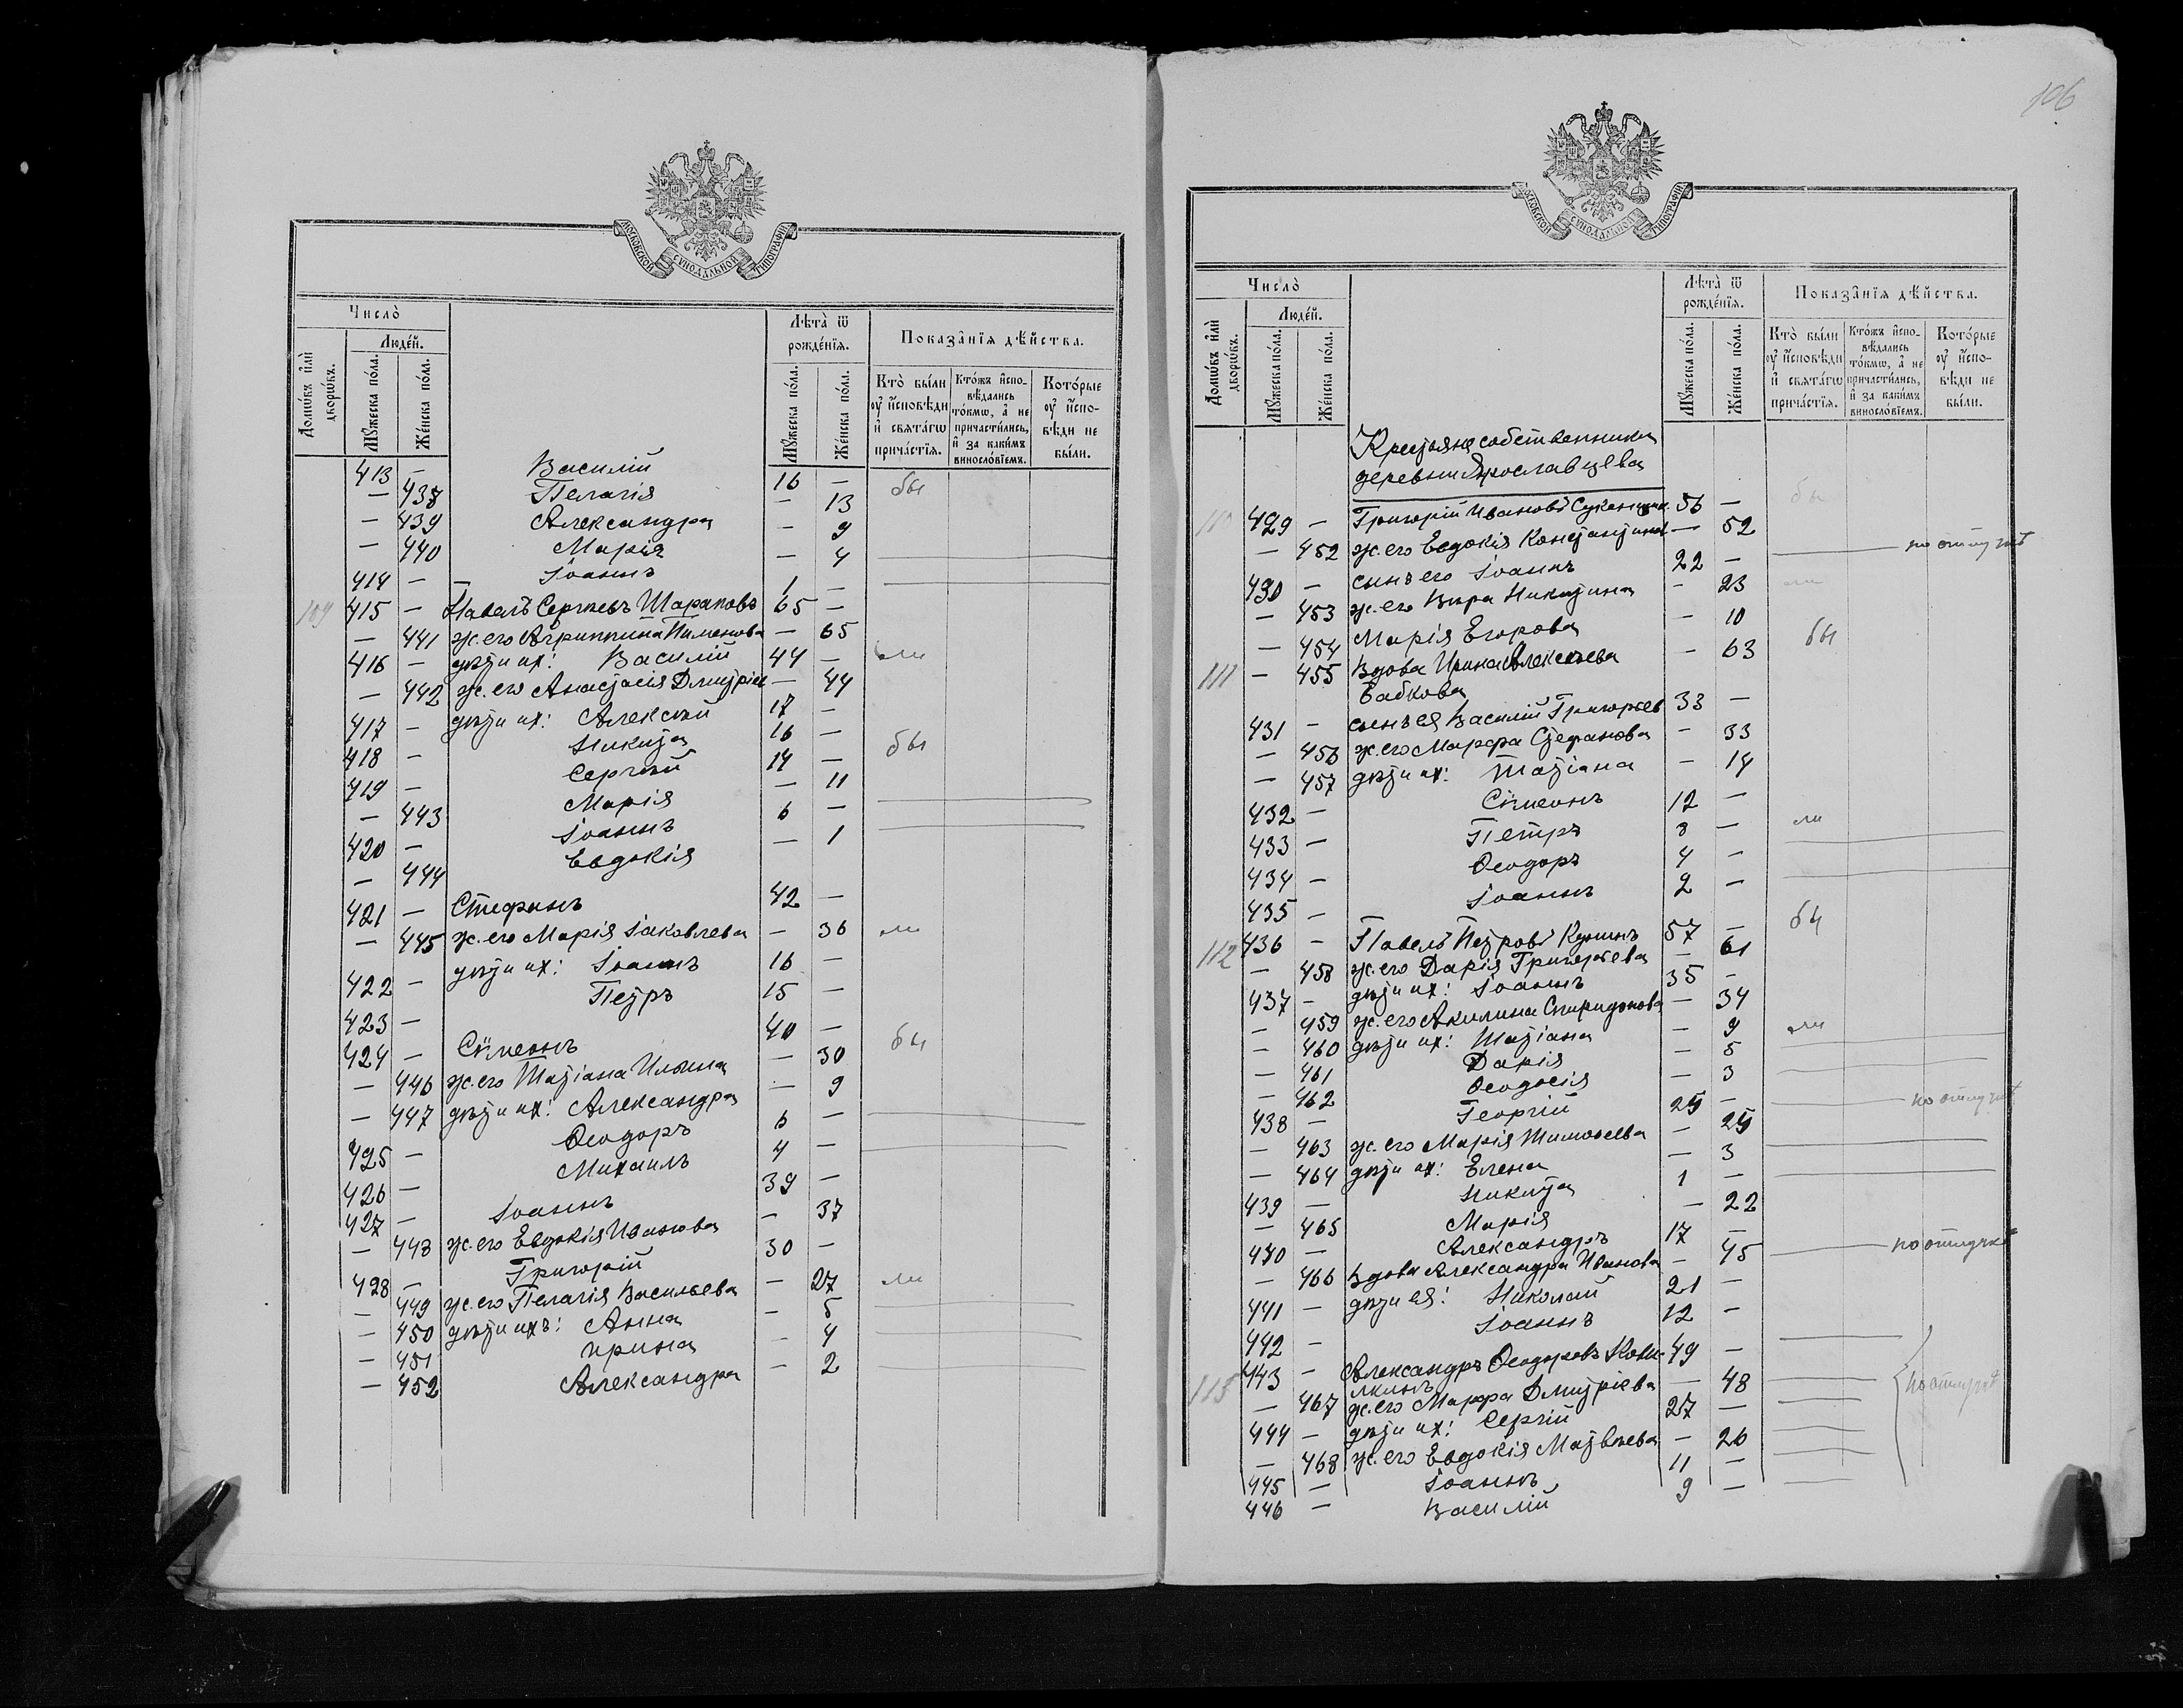 МОСКОВСКОЙ СѴНОДАЛЬНОЙ ТИПОГРАФІИ
Число̀
Домѡ́въ и҆лѝ дворѡ́въ.
Люде́й.
Мꙋ́жеска по́ла.
Же́нска по́ла.
Лѣта̀ ѿ рожде́нїѧ.
Мꙋ́жеска по́ла.
Же́нска по́ла.
Показа̂нїѧ дѣ́йства.
Кто̀ бы́ли ᲂу҆ и҆сповѣди и҆ свѧта́гѡ прича́стїѧ.
Кто́жъ и҆спо-вѣдались то́кмѡ, а҆ не причасти́лись, и҆ за каки́мъ винослові́емъ.
Кото́рые ᲂу҆ и҆спо-вѣди не бы́ли.
413 — Василій 16 —
— 438 Пелагія — 13 бы
— 439 Александра — 9
— 440 Марія — 4
414 — Іоаннъ 1 —
109 415 — Павелъ Сергѣевъ Шараповъ 65 —
— 441 ж. его Агриппина Пименова — 65
416 — дѣти их: Василій 44 — ли
— 442 ж. его Анастасія Дмитріев — 44
417 — дѣти их: Алексѣй 17 —
418 — Никита 16 — бы
419 — Сергѣй 14 —
— 443 Марія — 11
420 — Іоаннъ 6 —
— 444 Евдокія — 1
421 — Стефанъ 42 —
— 445 ж. его Марія Іаковлева — 36 ли
422 — дѣти их: Іоаннъ 16 —
423 — Петръ 15 —
424 — Сѵмеонъ 40 — бы
— 446 ж. его Татіана Ильина — 30
— 447 дѣти их: Александра — 9
425 — Ѳеодоръ 6 —
426 — Михаилъ 4 —
427 — Іоаннъ 39 —
— 448 ж. его Евдокія Иванова — 37
428 — Григорій 30 —
— 449 ж. его Пелагія Васильева — 27 ли
— 450 дѣти ихъ: Анна — 5
— 451 Ирина — 4
— 452 Александра — 2
106
МОСКОВСКОЙ СѴНОДАЛЬНОЙ ТИПОГРАФІИ
Число̀
Домѡ́въ и҆лѝ дворѡ́въ.
Люде́й.
Мꙋ́жеска по́ла.
Же́нска по́ла.
Лѣта̀ ѿ рожде́нїѧ.
Мꙋ́жеска по́ла.
Же́нска по́ла.
Показа̂нїѧ дѣ́йства.
Кто̀ бы́ли ᲂу҆ и҆сповѣди и҆ свѧта́гѡ прича́стїѧ.
Кто́жъ и҆спо-вѣдались то́кмѡ, а҆ не причасти́лись, и҆ за каки́мъ винослові́емъ.
Кото́рые ᲂу҆ и҆спо-вѣди не бы́ли.
Крестьяне собственники
деревни Ярославцева
110 429 — Григорій Ивановъ 56 — бы
— 452 ж. его Евдокія Константинов — 52
430 — сынъ его Іоаннъ 22 — по отлучкѣ
— 453 ж. его Вѣра Никитина — 23 ли
— 454 Марія Егорова — 10
111 — 455 Вдова Ирина Алексѣева — 63 бы
Бабкова
431 — сынъ ея Василій Григорьев 33 —
— 456 ж. его Марфа Стефанова — 33
— 457 дѣти их: Татіана — 14
432 — Сѵмеонъ 12 —
433 — Петръ 8 — ли
434 — Ѳеодоръ 4 —
435 — Іоаннъ 2 —
112 436 — Павелъ Петровъ 57 — бы
— 458 ж. его Дарія Григорьева — 61
437 — дѣти их: Іоаннъ 35 —
— 459 ж. его Акилина Спиридонова — 34
— 460 дѣти их: Татіана — 9 ли
— 461 Дарія — 5
— 462 Ѳеодосія — 3
438 — Георгій 25 — по отлучкѣ
— 463 ж. его Марія Тимоѳеева — 25
— 464 дѣти их: Елена — 3
439 — Никита 1 —
— 465 Марія — 22
440 — Александръ 17 —
— 466 Вдова Александра Иванова — 45 по отлучкѣ
441 — дѣти ея: Николай 21 —
442 — Іоаннъ 12 —
113 443 — Александръ Ѳеодоровъ 49 —
— 467 ж. его Марфа Дмитріева — 48 по отлучкѣ
444 — дѣти их: Сергій 27 —
— 468 ж. его Евдокія Матвѣева — 26
445 — Іоаннъ 11 —
446 — Василій 9 —